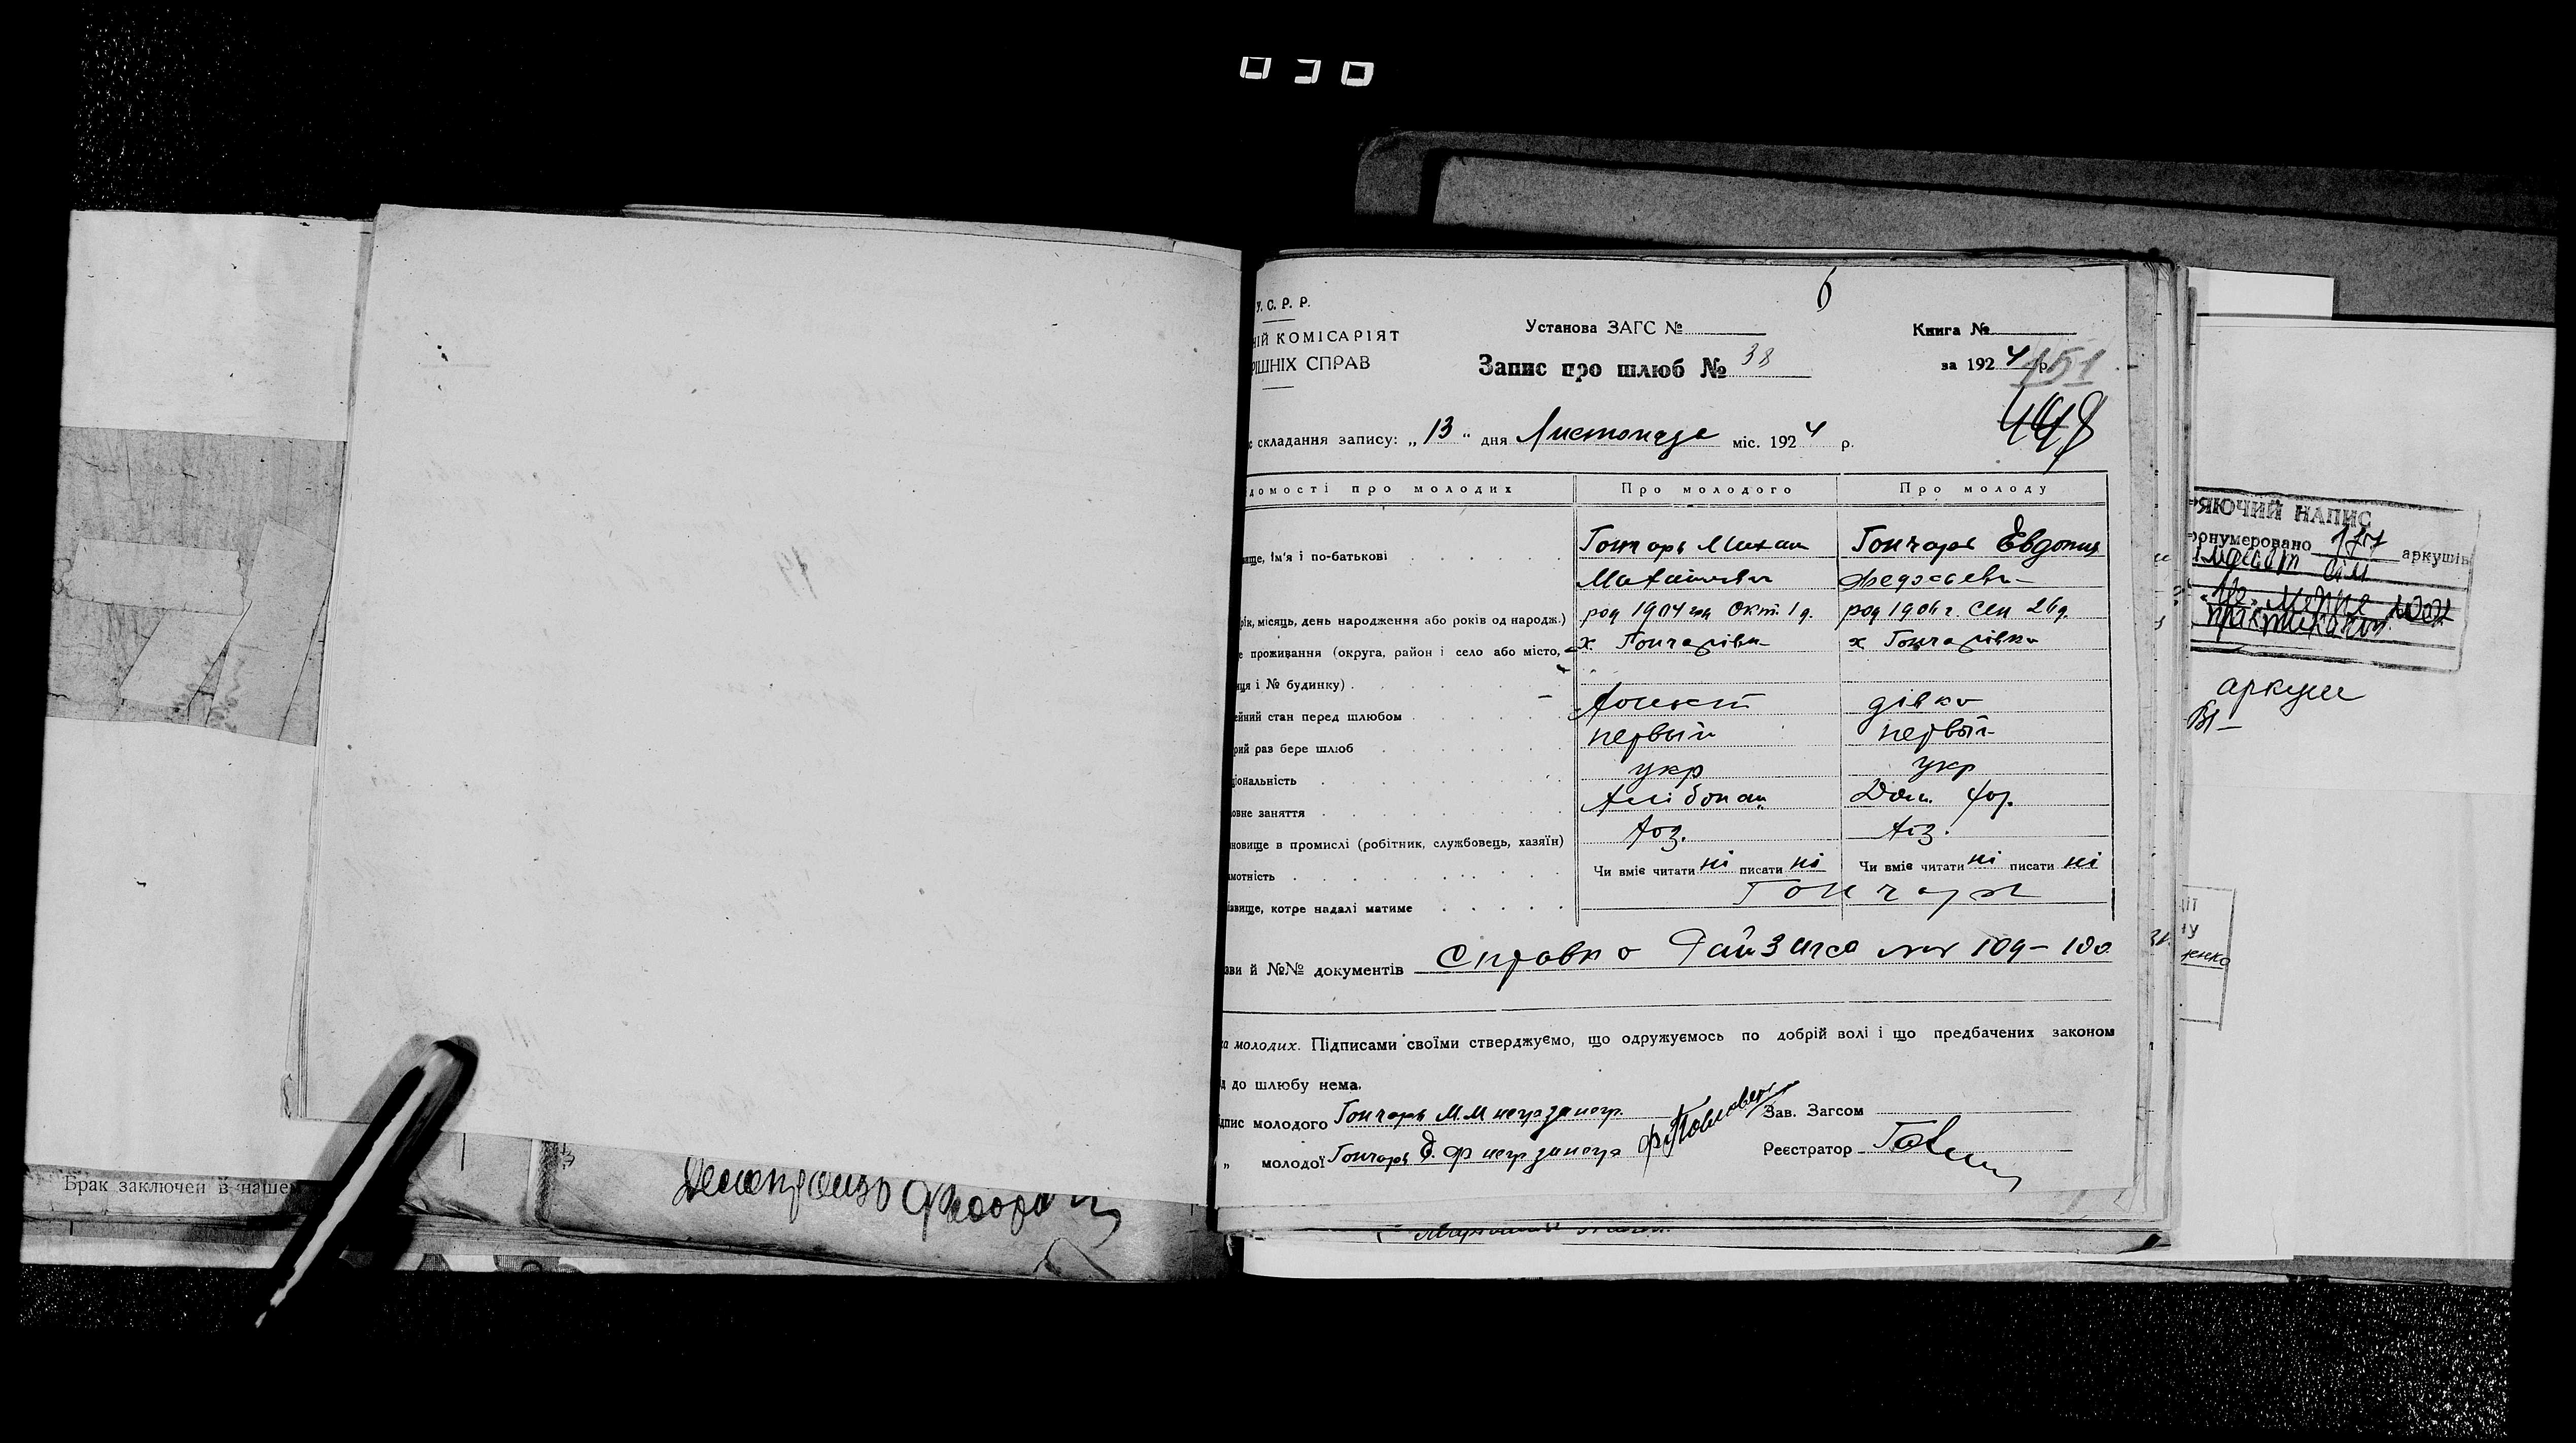 У. С. Р. Р.
НІЙ КОМІСАРІЯТ
РІШНІХ СПРАВ
6
Установа ЗАГС №
Книга №
Запис про шлюб № 38
за 1924 р.
151
448
складання запису: „13“ дня Листопада міс. 1924 р.
домості про молодих
Про молодого
Про молоду
вище, ім'я і по-батькові
Гончарь Михаил
Гончарь Евдокия
рік, місяць, день народження або років од народж.)
род 1904 год Окт. 1 д.
род 1906 г. Сен 26 д.
е проживання (округа, район і село або місто,
х. Гончарівка
х Гончарівка
иця і № будинку)
ейний стан перед шлюбом
дівка
рий раз бере шлюб
первый
первый
ціональність
укр
укр
овне заняття
Хлібопаш
Дом. хоз.
новище в промислі (робітник, службовець, хазяїн)
Хоз.
мотність
Чи вміє читати ні писати ні
Чи вміє читати ні писати ні
ізвище, котре надалі матиме
Гончарь
зви й №№ документів Справка Райзагса 109–100
а молодих. Підписами своїми стверджуємо, що одружуємось по добрій волі і що предбачених законом
д до шлюбу нема.
дпис молодого Гончарь М. М
Зав. Загсом
„ молодої Гончарь Е. Ф
Реєстратор
ЯЮЧИЙ НАПИС
ронумеровано 177 аркушів
аркуші
Брак заключен в наше